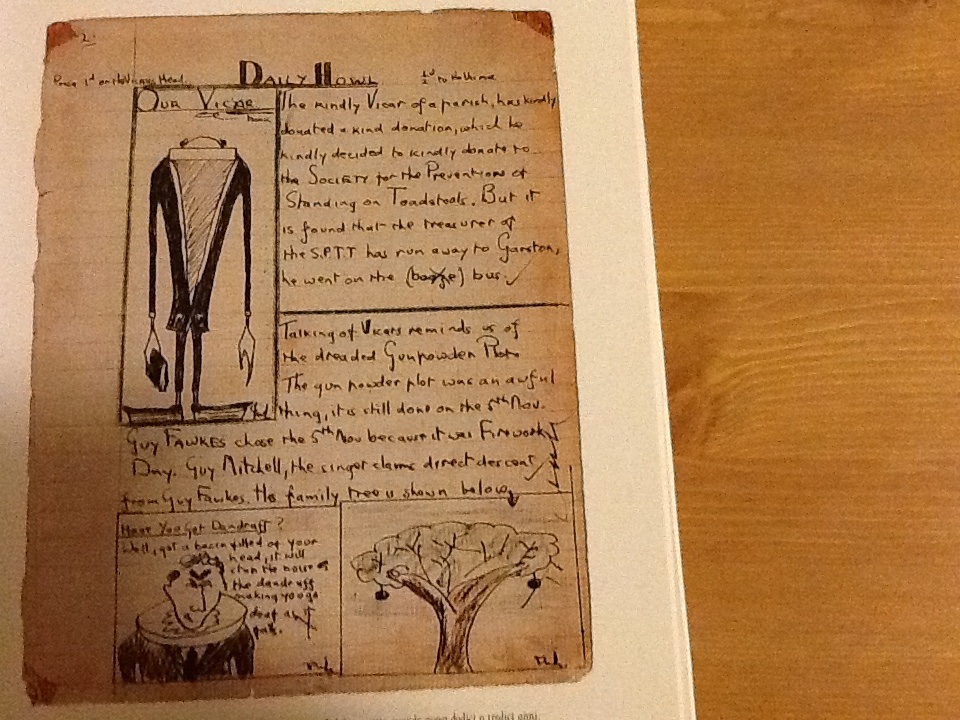 2.
DAILY HOWL
OUR VICAR
The kindly Vicar of a parish, has kindly
donated a kind donation, which he
kindly decided to kindly donate to
the SOCIETY for the Preventions of
Standing on Toadstools. But it
is found that the treasurer of
the S.P.T.T has run away to Garston,
he went on the (booze) bus.
Talking of Vicars reminds us of
the dreaded Gunpowder Plot.
The gun powder plot was an awful
thing, it is still done on the 5th Nov.
GUY FAWKES chose the 5th Nov because it was Firework
Day. Guy Mitchell, the singer claims direct descent
from Guy Fawkes. His family tree is shown below,
Have You Got Dandraff?
Well, get a basin filled of your
head, it will
stop the noise of
the dandruff
making you go
deaf
dodici o tredici anni